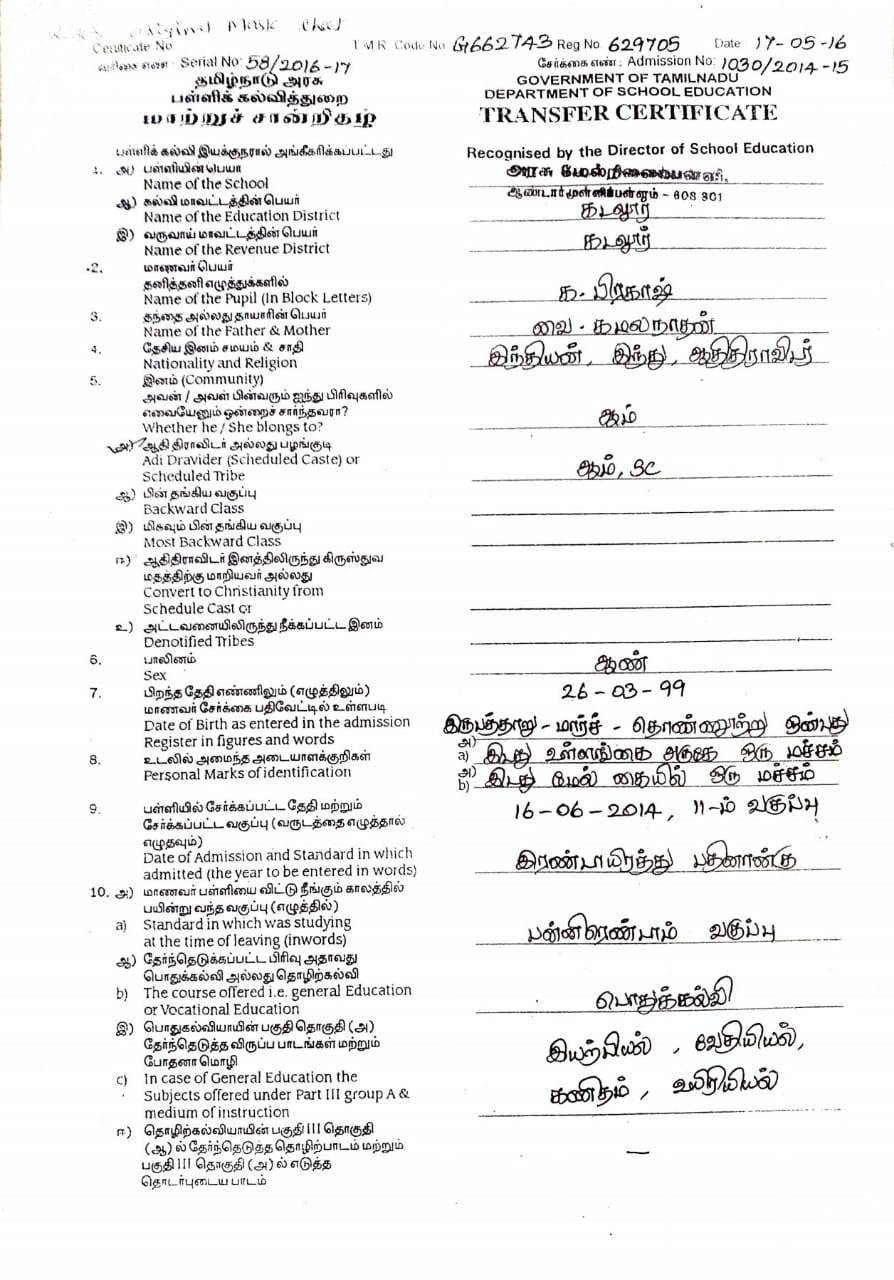 Original Mark Sheet
Certificate No T M R Code No G1662743 Reg No 629705 Date 17-05-16
வரிசை எண் : Serial No: 58/2016-17 சேர்க்கை எண் : Admission No: 1030/2014-15
தமிழ்நாடு அரசு GOVERNMENT OF TAMILNADU
பள்ளிக் கல்வித்துறை DEPARTMENT OF SCHOOL EDUCATION
மாற்றுச் சான்றிதழ் TRANSFER CERTIFICATE
பள்ளிக் கல்வி இயக்குநரால் அங்கீகரிக்கப்பட்டது Recognised by the Director of School Education
1. அ) பள்ளியின் பெயர் அரசு மேல்நிலைப்பள்ளி,
Name of the School
ஆண்டார்முள்ளிபள்ளம் - 608 801
ஆ) கல்வி மாவட்டத்தின் பெயர்
Name of the Education District கடலூர்
இ) வருவாய் மாவட்டத்தின் பெயர்
Name of the Revenue District கடலூர்
2. மாணவர் பெயர்
தனித்தனி எழுத்துக்களில்
Name of the Pupil (In Block Letters) க. பிரகாஷ்
3. தந்தை அல்லது தாயாரின் பெயர்
Name of the Father & Mother வை. கமலநாதன்
4. தேசிய இனம் சமயம் & சாதி
Nationality and Religion இந்தியன், இந்து, ஆதிதிராவிடர்
5. இனம் (Community)
அவன் / அவள் பின்வரும் ஐந்து பிரிவுகளில்
எவையேனும் ஒன்றைச் சார்ந்தவரா?
Whether he / She belongs to? ஆம்
அ) ஆதி திராவிடர் அல்லது பழங்குடி
Adi Dravider (Scheduled Caste) or
Scheduled Tribe ஆம், SC
ஆ) பின் தங்கிய வகுப்பு
Backward Class
இ) மிகவும் பின் தங்கிய வகுப்பு
Most Backward Class
ஈ) ஆதிதிராவிடர் இனத்திலிருந்து கிருஸ்துவ
மதத்திற்கு மாறியவர் அல்லது
Convert to Christianity from
Schedule Cast or
உ) அட்டவனையிலிருந்து நீக்கப்பட்ட இனம்
Denotified Tribes
6. பாலினம்
Sex ஆண்
7. பிறந்த தேதி எண்ணிலும் (எழுத்திலும்) 26-03-99
மாணவர் சேர்க்கை பதிவேட்டில் உள்ளபடி
Date of Birth as entered in the admission
Register in figures and words இருபத்தாறு - மார்ச் - தொண்ணூற்று ஒன்பது
8. உடலில் அமைந்த அடையாளக்குறிகள் அ) a) இடது உள்ளங்கை அருகே ஒரு மச்சம்
Personal Marks of identification அ) b) இடது மேல் கையில் ஒரு மச்சம்
9. பள்ளியில் சேர்க்கப்பட்ட தேதி மற்றும் 16-06-2014, 11-ம் வகுப்பு
சேர்க்கப்பட்ட வகுப்பு (வருடத்தை எழுத்தால்
எழுதவும்)
Date of Admission and Standard in which
admitted (the year to be entered in words) இரண்டாயிரத்து பதினான்கு
10. அ) மாணவர் பள்ளியை விட்டு நீங்கும் காலத்தில்
பயின்று வந்த வகுப்பு (எழுத்தில்)
a) Standard in which was studying
at the time of leaving (inwords) பன்னிரெண்டாம் வகுப்பு
ஆ) தேர்ந்தெடுக்கப்பட்ட பிரிவு அதாவது
பொதுக்கல்வி அல்லது தொழிற்கல்வி
b) The course offered i.e. general Education
or Vocational Education பொதுக்கல்வி
இ) பொதுகல்வியாயின் பகுதி தொகுதி (அ)
தேர்ந்தெடுத்த விருப்ப பாடங்கள் மற்றும்
போதனா மொழி இயற்பியல், வேதியியல்,
c) In case of General Education the
Subjects offered under Part III group A & கணிதம், உயிரியியல்
medium of instruction
ஈ) தொழிற்கல்வியாயின் பகுதி III தொகுதி
(ஆ) ல் தேர்ந்தெடுத்த தொழிற்பாடம் மற்றும்
பகுதி III தொகுதி (அ) ல் எடுத்த —
தொடர்புடைய பாடம்